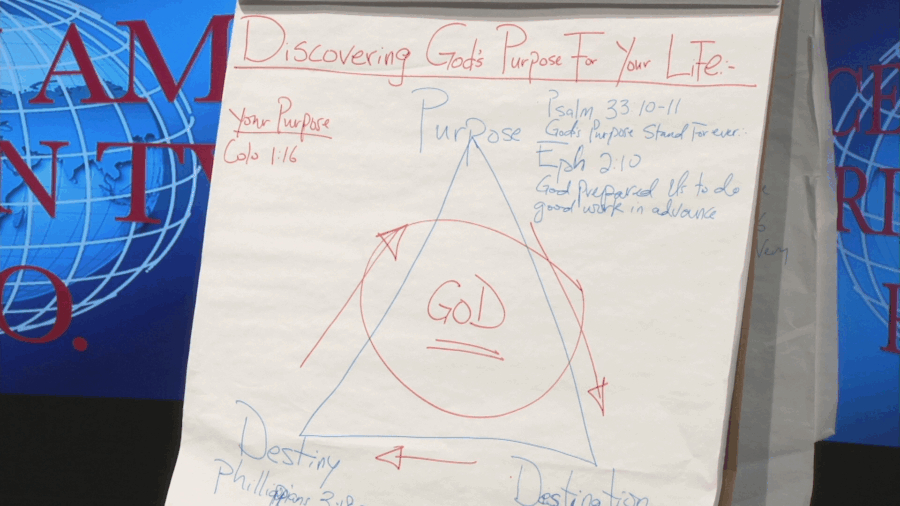 Discovering God's Purpose For Your Life:-
Your Purpose
Colo 1:16
Purpose
Psalm 33:10-11
God's Purpose Stand For ever:-
Eph 2:10
God prepared Us to do
good work in advance
GOD
Destiny
Destination
AM
N TV
O.
CE
RI